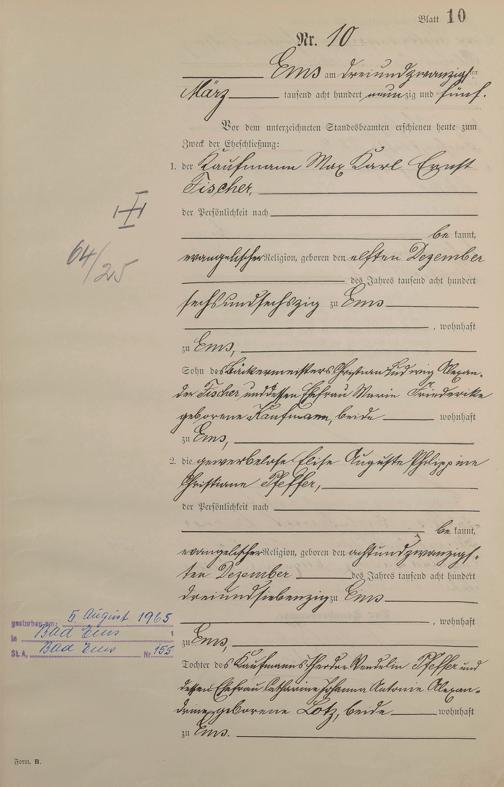 Blatt 10
Nr. 10
Ems am dreiundzwanzigsten
März tausend acht hundert neunzig und fünf.
Vor dem unterzeichneten Standesbeamten erschienen heute zum
Zweck der Eheschließung:
1. der Kaufmann Max Karl Ernst
Fischer,
der Persönlichkeit nach
be kannt,
evangelischer Religion, geboren den elften Dezember
des Jahres tausend acht hundert
sechsundsechszig zu Ems
, wohnhaft
zu Ems,
Sohn des Bäckermeisters Christian Ludwig Alexan-
der Fischer und dessen Ehefrau Marie Friederike
geborene Kaufmann, beide wohnhaft
zu Ems,
2. die gewerbelose Elise Auguste Philippine
Christiane Pfeffer,
der Persönlichkeit nach
be kannt,
evangelischer Religion, geboren den achtundzwanzigs-
ten Dezember des Jahres tausend acht hundert
dreiundsiebenzig zu Ems
, wohnhaft
zu Ems,
Tochter des Kaufmanns Theodor Wendelin Pfeffer und
dessen Ehefrau Catharine Johanna Antonie Alexan-
drine, geborene Lotz, beide wohnhaft
zu Ems.
Form. B.
64/25
gestorben am: 5 August 1965
in Bad Ems
St. A. Bad Ems Nr. 155